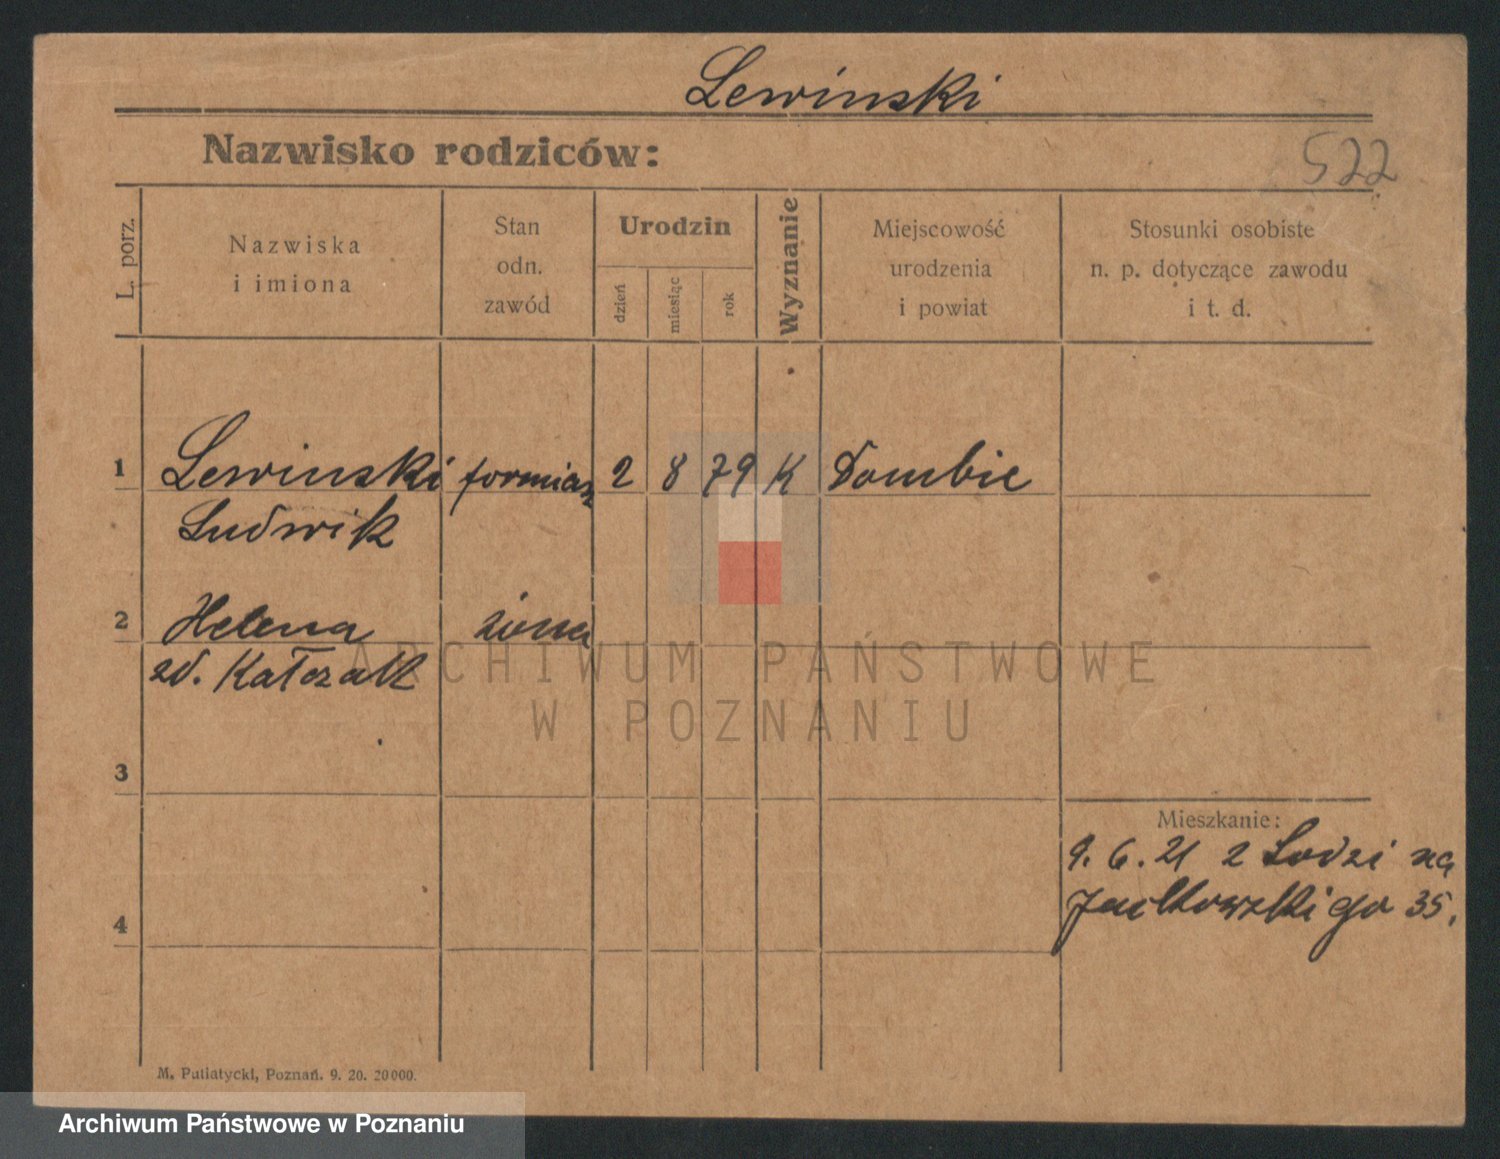 Lewinski
Nazwisko rodziców:
522
L. porz.
Nazwiska
i imiona
Stan
odn.
zawód
Urodzin
dzień
miesiąc
rok
Wyznanie
Miejscowość
urodzenia
i powiat
Stosunki osobiste
n. p. dotyczące zawodu
i t. d.
1 Lewinski formiasz 2 8 79 K Dombie
Ludwik
2 Helena żona
zd. Kałczak
ARCHIWUM PAŃSTWOWE
W POZNANIU
3
Mieszkanie:
9. 6. 21 z Lodzi na
35.
4
M. Putiatycki, Poznań. 9. 20. 20000.
Archiwum Państwowe w Poznaniu